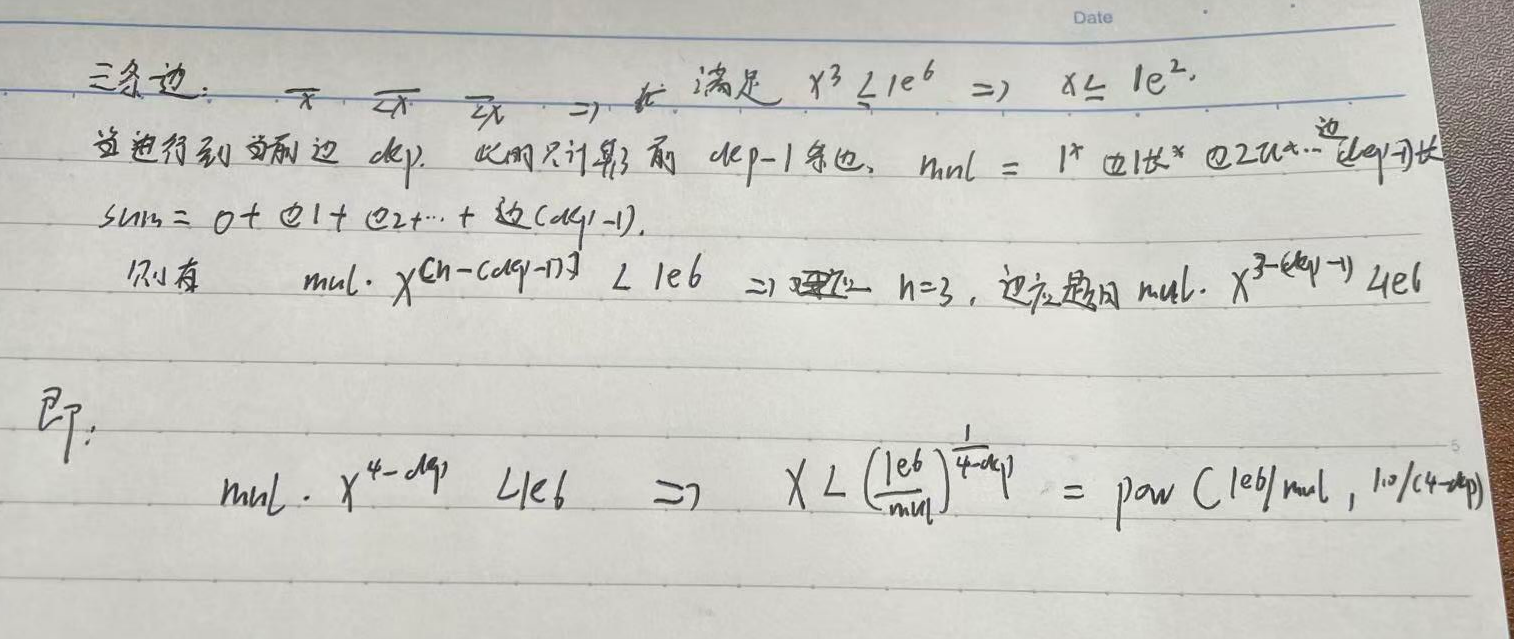 Date
三条边: x ≤x ≤x => 扩 满足 x³ ≤ 1e⁶ => x ≤ 1e².
当进行到当前边 dep. 此时只计算了前 dep-1 条边, mul = 1* 边1长* 边2长*... 边(dep-1)长
sum = 0 + 边1 + 边2 +...+ 边(dep-1).
则有 mul · x^[n-(dep-1)] < 1e6 => n=3, 边应题目 mul · x^3-(dep-1) < 1e6
即:
mul · x^4-dep < 1e6 => x < (1e6/mul)^1/(4-dep) = pow (1e6/mul, 1.0/(4-dep))
5